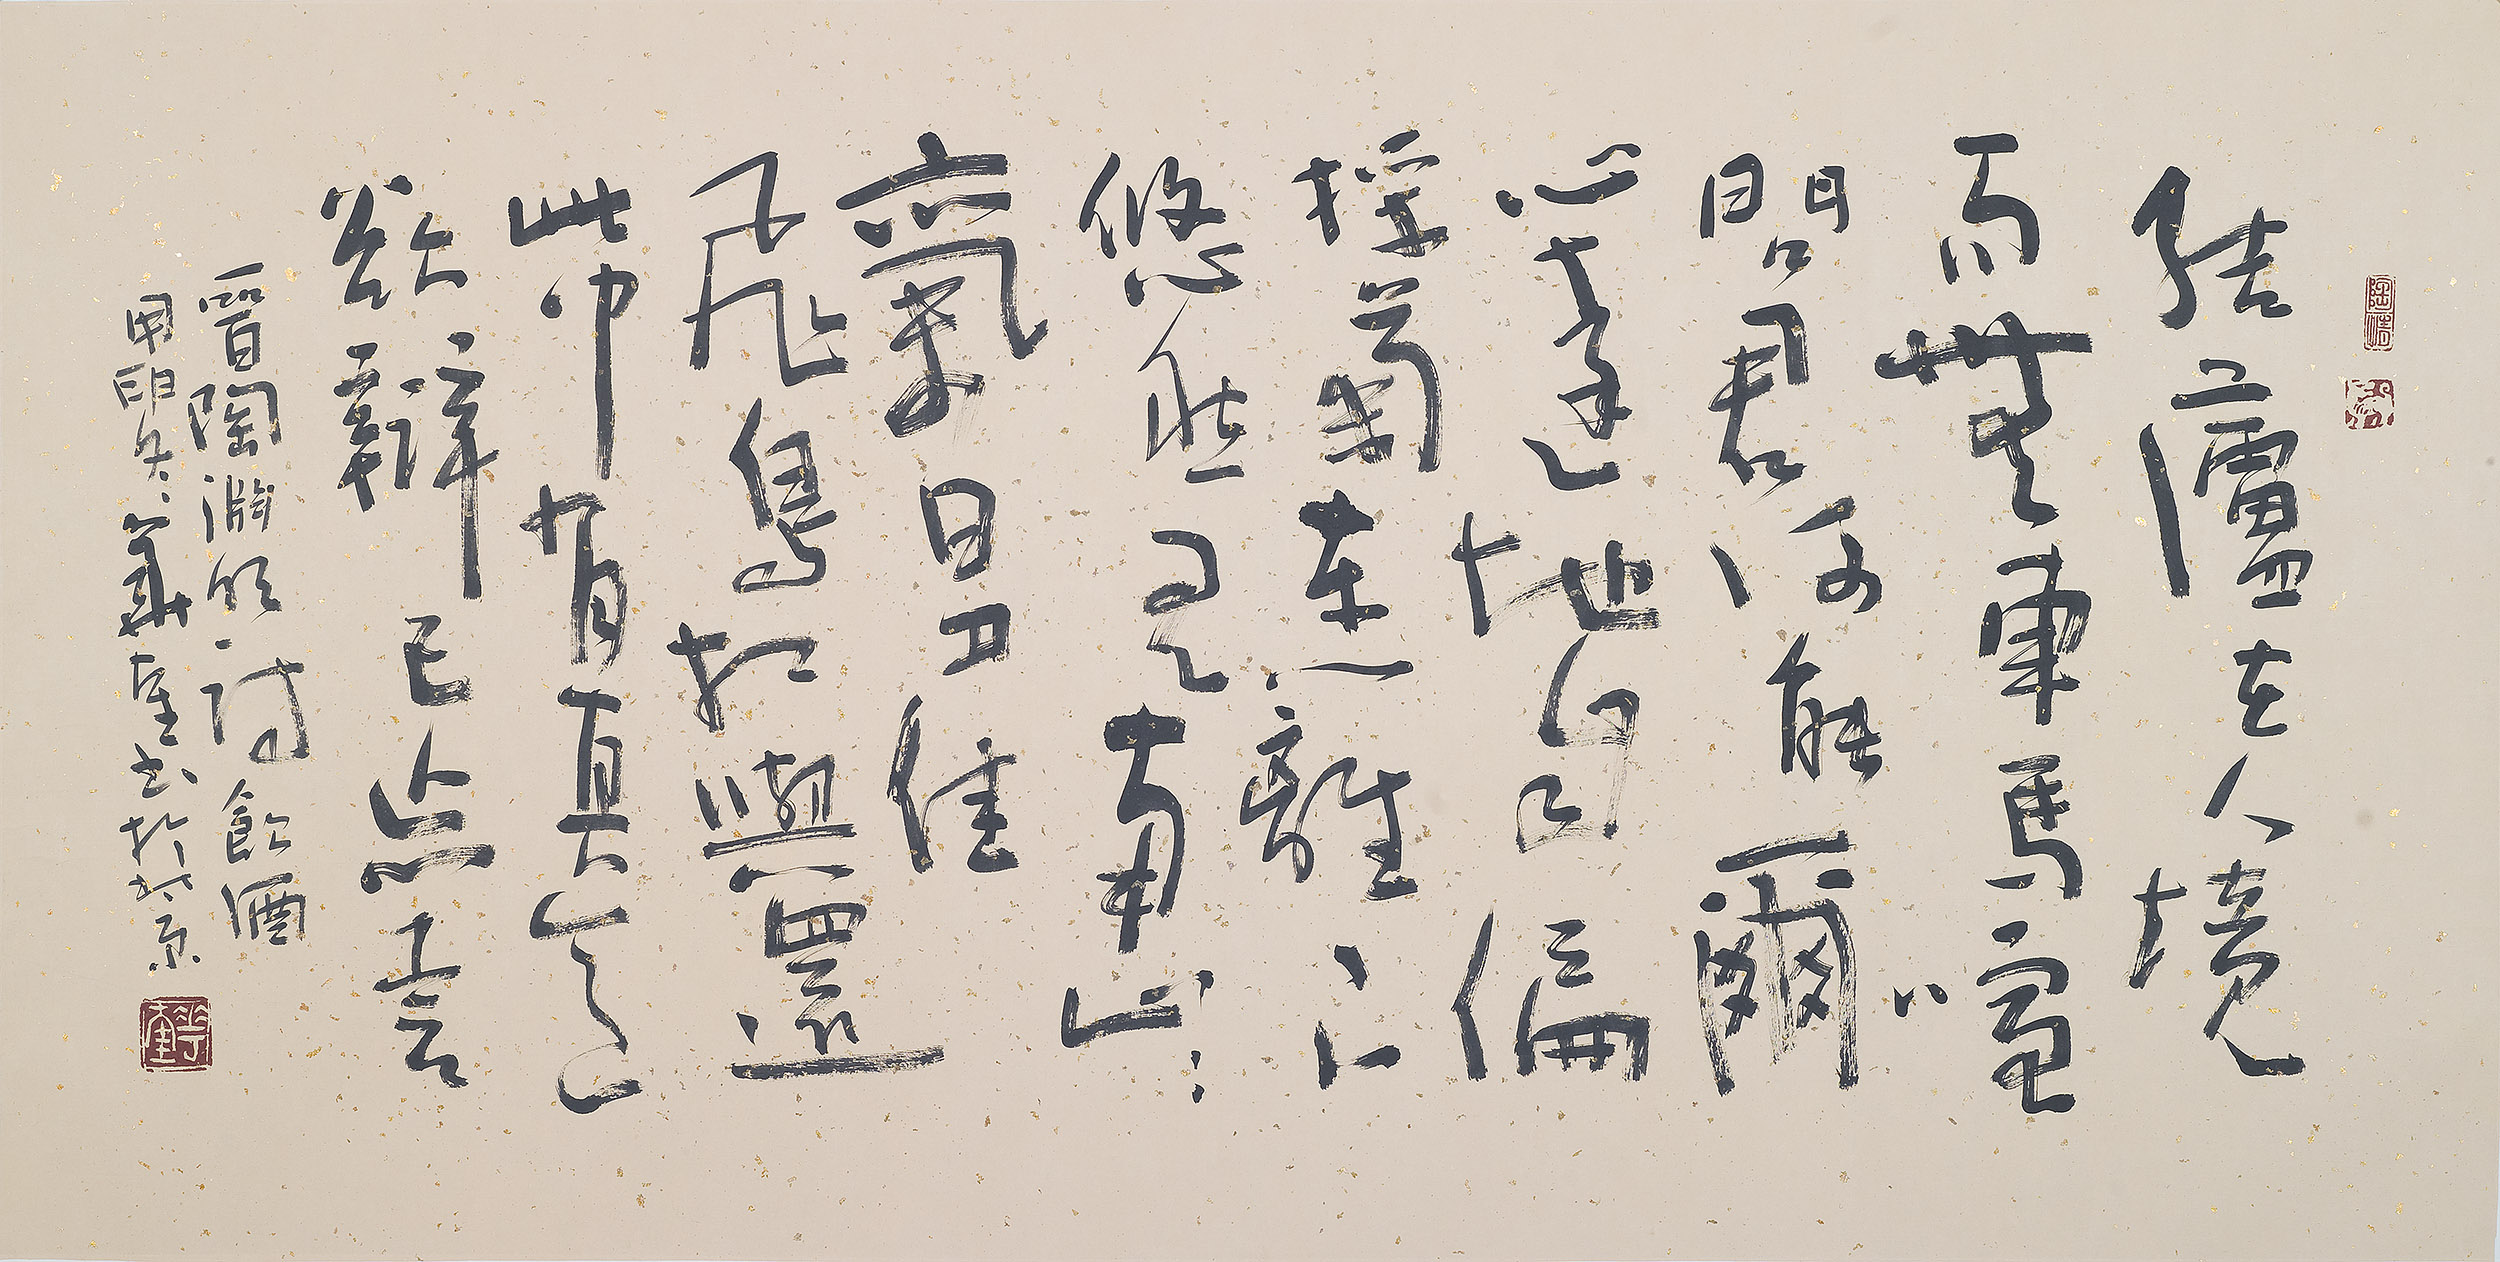 結廬在人境
而無車馬喧
問君何能爾
心遠地自偏
採菊東離下
悠然見南山々
氣日夕佳
飛鳥相與還
此中有真意
欲辯已忘言
晉陶淵明詩飲酒
甲申冬華奎書於北京
華奎